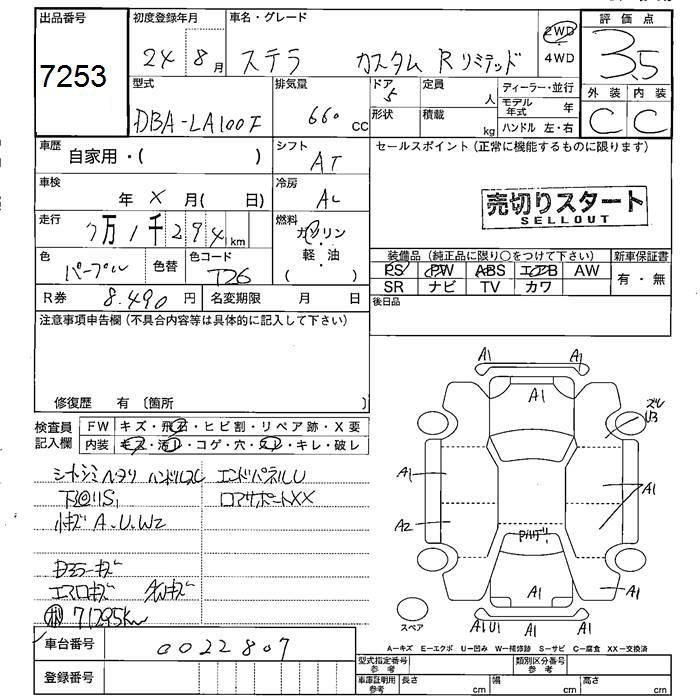 出品番号
7253
初度登録年月
24 8月
車名・グレード
ステラ カスタム Rリミテッド
2WD
4WD
評価点
3.5
外装 内装
C C
型式
DBA-LA100F
排気量
660 cc
ドア
5
形状
定員
人
積載
kg
ディーラー・並行
モデル年式 年
ハンドル 左・右
車歴
自家用・( )
シフト
AT
セールスポイント(正常に機能するものに限ります)
売切りスタート
SELLOUT
車検
年 X 月( 日)
冷房
AC
走行
7万1千294km
燃料
ガソリン
・
軽・油
( )
色
パープル
色替
色コード
T26
装備品(純正品に限り○をつけて下さい)
新車保証書
PS PW ABS エアB AW
SR ナビ TV カワ
有・無
R券 8.490円
名変期限 月 日
後日品
注意事項申告欄(不具合内容等は具体的に記入して下さい)
修復歴 有〔箇所 〕
検査員記入欄
FW キズ・飛石・ヒビ割・リペア跡・X要
内装 キズ・汚れ・コゲ・穴・スレ・キレ・破レ
エンドパネルU
ロアサポートXX
小キズA.U.W2
71295km
A1 A1
A1
A1
A2
A1
A1
A1U1 A1 A1
A1
スペア
車台番号 0022807
登録番号
A−キズ E−エクボ U−凹み W−補修跡 S−サビ C−腐食 XX−交換済
型式指定番号 参考
類別区分番号 参考
車庫証明用 参考
長さ cm 幅 cm 高さ cm